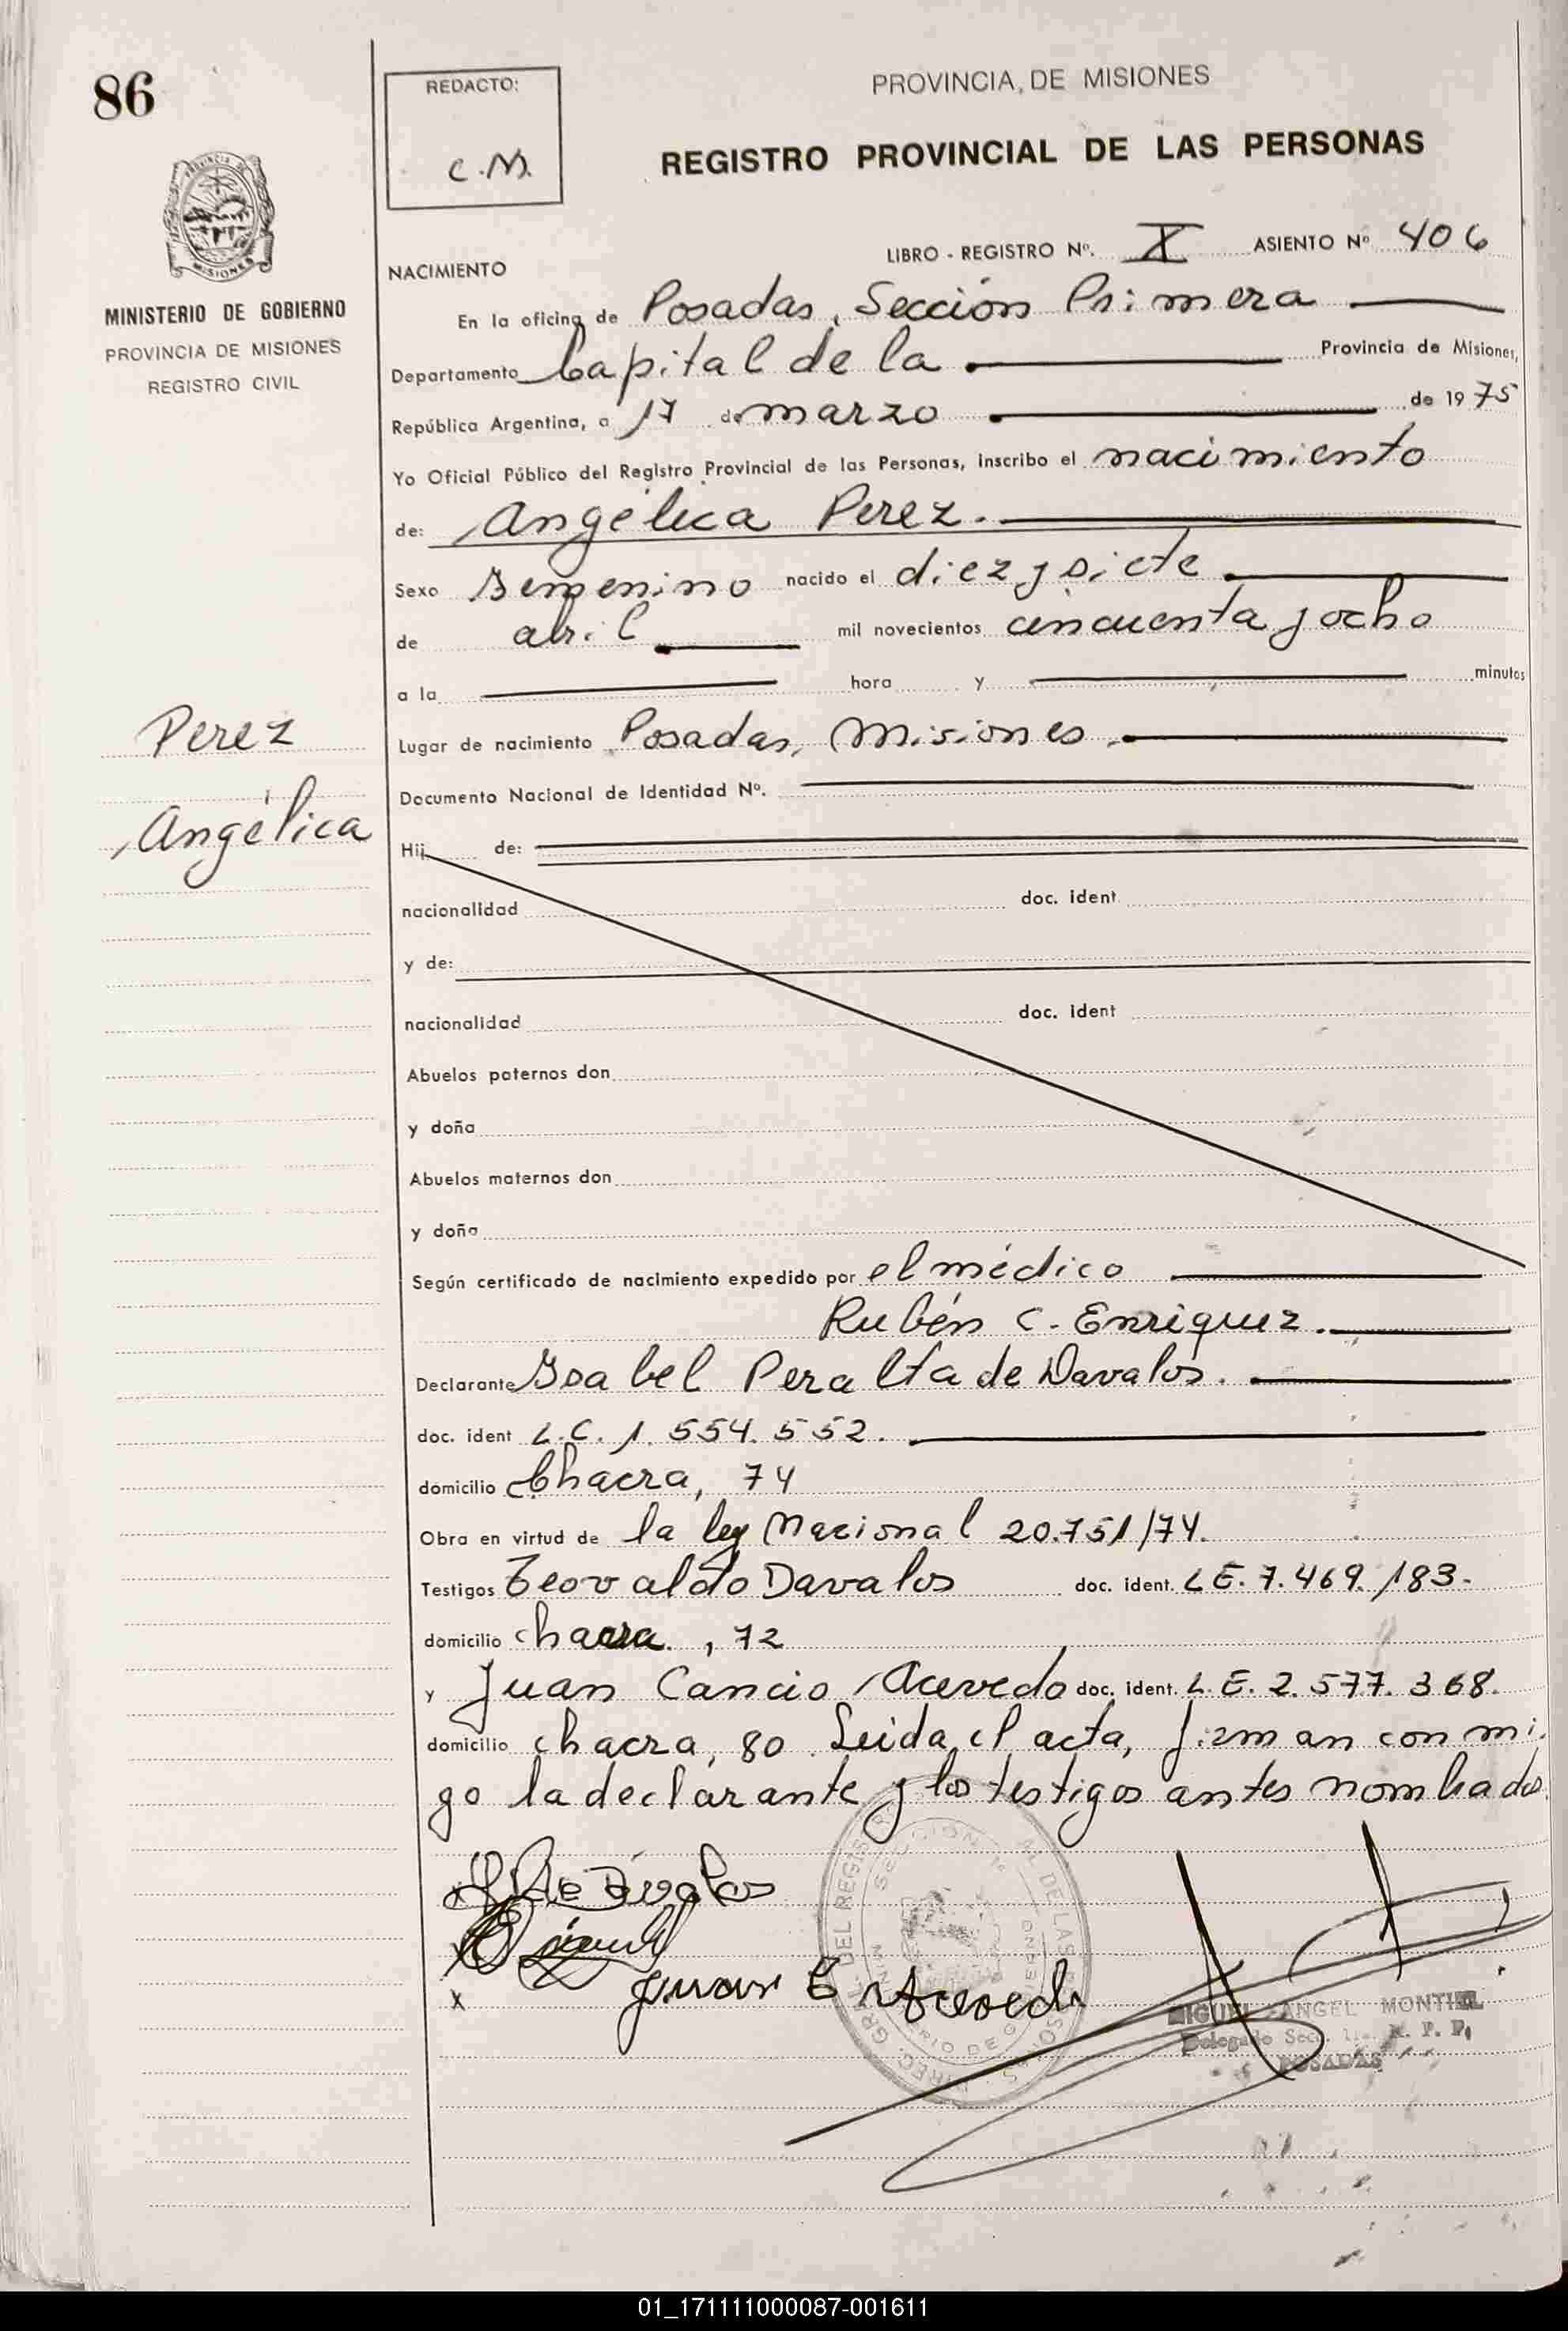 86
REDACTO:
C.M.
PROVINCIA DE MISIONES
REGISTRO PROVINCIAL DE LAS PERSONAS
LIBRO - REGISTRO Nº. X ASIENTO Nº 406
NACIMIENTO
MINISTERIO DE GOBIERNO
PROVINCIA DE MISIONES
REGISTRO CIVIL
En la oficina de Posadas, Sección Primera
Departamento Capital de la Provincia de Misiones,
República Argentina, a 17 de marzo de 1975
Yo Oficial Público del Registro Provincial de las Personas, inscribo el nacimiento
de: Angélica Perez.
Sexo Femenino nacido el diez y siete
de abril mil novecientos cincuenta y ocho
a la hora y minutos
Perez
Angélica
Lugar de nacimiento Posadas, Misiones.
Documento Nacional de Identidad Nº.
Hij de:
nacionalidad doc. ident
y de:
nacionalidad doc. ident
Abuelos paternos don
y doña
Abuelos maternos don
y doña
Según certificado de nacimiento expedido por el médico
Rubén C. Enriquez.
Declarante Isabel Peralta de Davalos.
doc. ident L.C. 1.554.552.
domicilio Chacra, 74
Obra en virtud de la ley Nacional 20.751/74.
Testigos Teovaldo Davalos doc. ident. L E. 7.469.183.
domicilio chacra., 72
y Juan Cancio Acevedo doc. ident. L. E. 2.577.368.
domicilio chacra, 80. Leida el acta, firman con mi
go la declarante y los testigos antes nombrados.
x
x
Juan C Acevedo
MIGUEL ANGEL MONTIEL
Delegado Secc. 1ra. R. P. P.
POSADAS
01_171111000087-001611